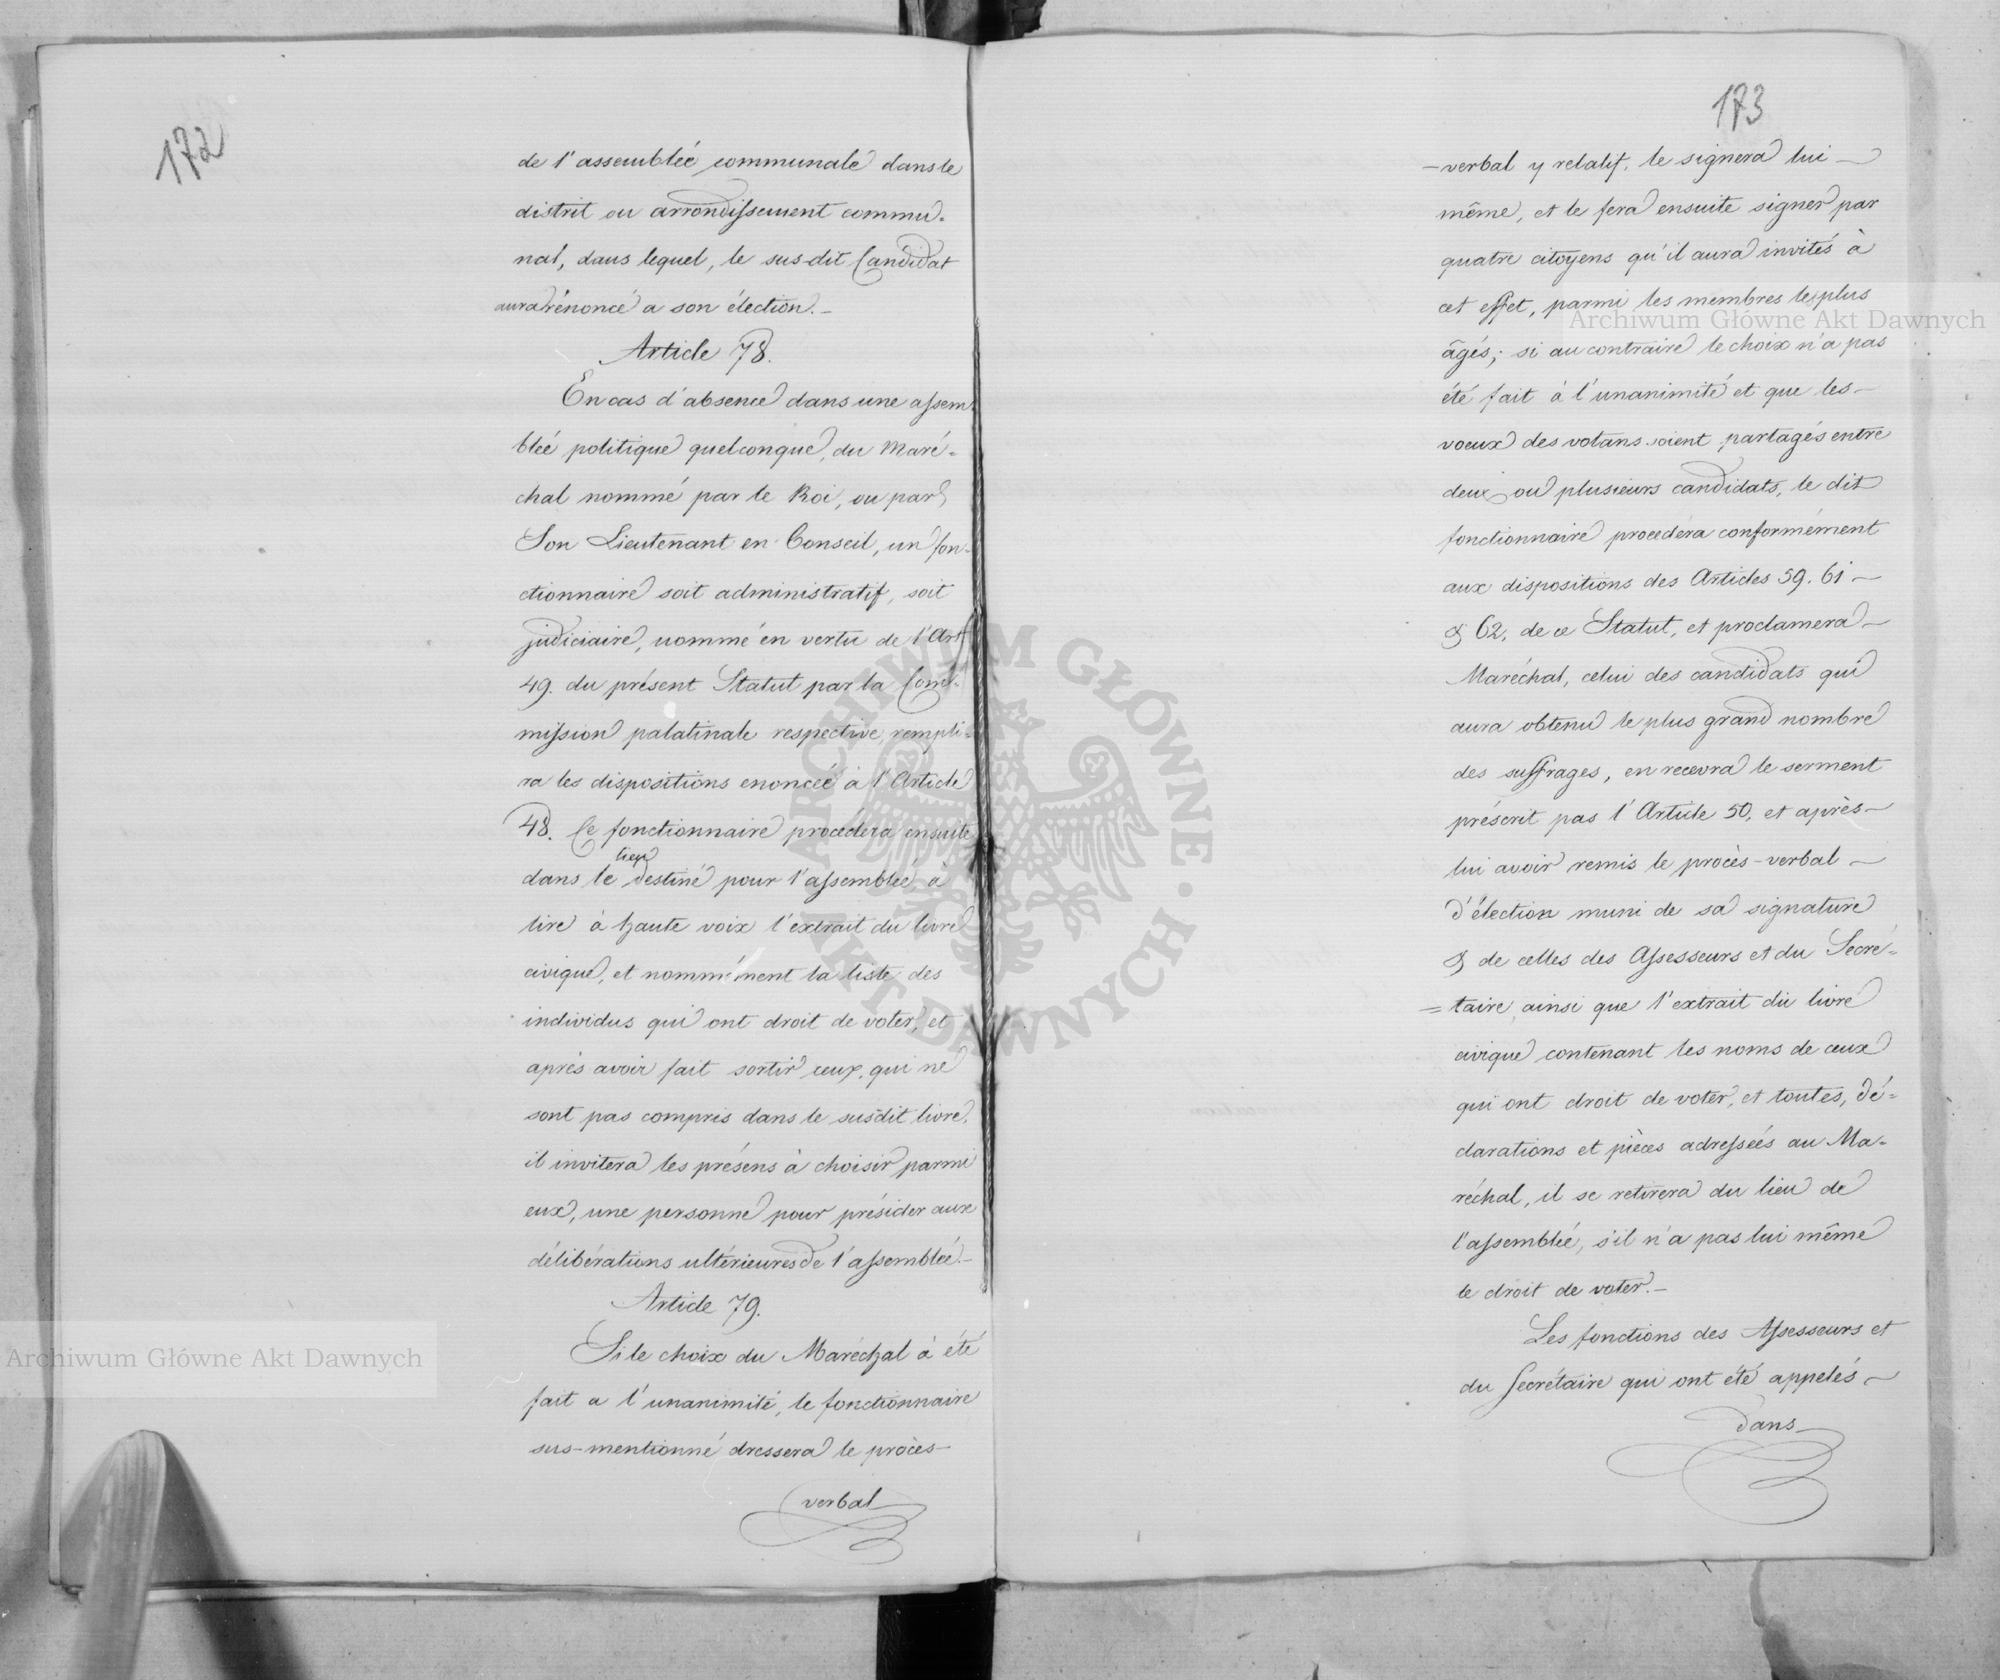 172
de l'assemblée communale dans le
distrit ou arrondissement commu-
nal, dans lequel, le sus-dit Candidat
aura rénoncé a son élection.-
Article 78.
En cas d'absence dans une assem-
blée politique quelconque, du Maré-
chal nommé par le Roi, ou par
Son Lieutenant en Conseil, un fon-
ctionnaire soit administratif, soit
judiciaire, nommé en vertu de l'Art
49. du présent Statut par la Com-
mission palatinale respective, rempli-
ra les dispositions enoncéé à l'Article
48. Ce fonctionnaire procédera ensuite
lieu
dans le destiné pour l'assemblée à
lire à haute voix l'extrait du livre
civique, et nommément la liste des
individus qui ont droit de voter, et
après avoir fait sortir ceux, qui ne
sont pas compris dans le susdit livre,
il invitera les présens à choisir parmi
eux, une personne pour présider aux
délibérations ultérieures de l'assemblée.-
Article 79.
Si le choix du Maréchal à été
fait a l'unanimité, le fonctionnaire
sus-mentionné dressera le procès-
verbal
173
-verbal y relatif, le signera lui-
même, et le fera ensuite signer par
quatre citoyens qu'il aura invités à
cet effet, parmi les membres les plus
âgés; si au contraire le choix n'a pas
été fait à l'unanimité et que les-
voeux des votans soient partagés entre
deux ou plusieurs candidats, le dit
fonctionnaire procedera conformément
aux dispositions des Articles 59. 61-
& 62, de ce Statut, et proclamera-
Maréchal, celui des candidats qui
aura obtenu le plus grand nombre
des suffrages, en recevra le serment
préscrit pas l'Article 50, et après-
lui avoir remis le procès-verbal-
d'élection muni de sa signature
& de celles des Assesseurs et du Secré-
=taire ainsi que l'extrait du livre
civique contenant les noms de ceux
qui ont droit de voter, et toutes, dé-
clarations et pièces adressées au Ma-
réchal, il se retirera du lieu de
l'assemblée, s'il n'a pas lui même
le droit de voter.-
Les fonctions des Assesseurs et
du Secrétaire qui ont été appelés-
dans
Archiwum Główne Akt Dawnych
Archiwum Główne Akt Dawnych
ARCHIWUM GŁÓWNE · AKT DAWNYCH ·